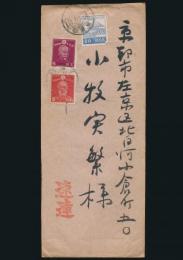 京都市左京区北白河小倉町五〇
小牧実繁様
速達